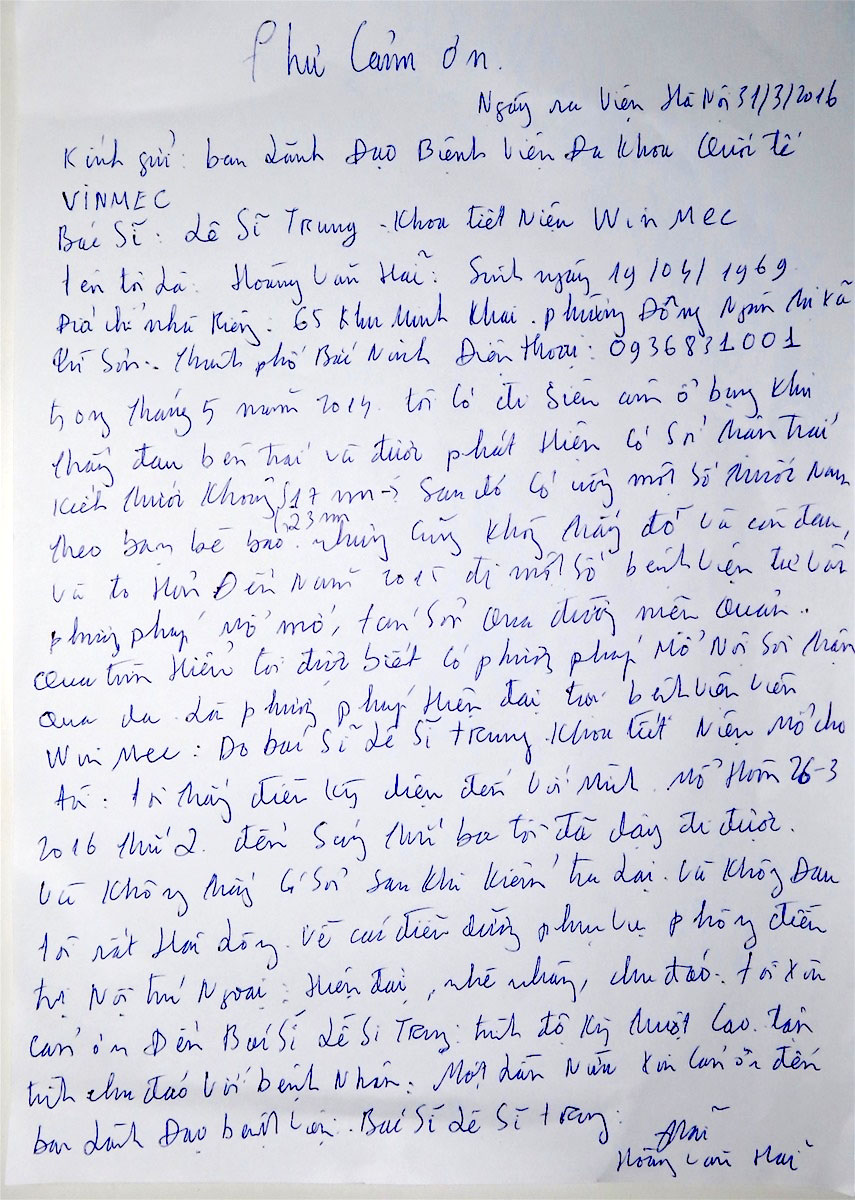 Thư Cảm ơn.
Ngày ra Viện Hà Nội 31/3/2016
Kính gửi: ban Lãnh Đạo Bệnh Viện Đa Khoa Quốc tế
VINMEC
Bác Sĩ: Lê Sĩ Trung - Khoa tiết Niệu Win MEC
Tên tôi Là: Hoàng Văn Hải: Sinh ngày 19/04/1969
Địa chỉ nhà Riêng: 65 Khu Minh Khai. phường Đông Ngàn thị Xã
Từ Sơn. Thành phố Bắc Ninh Điện thoại: 0936831001
trong tháng 5 năm 2014. tôi Có đi Siêu âm ổ bụng khi
thấy đau bên trái và được phát Hiện Có Sỏi thận trái
Kích thước khoảng 17 mm → Sau đó Có uống một Số thuốc Nam
23 mm
theo bạn bè bảo. nhưng Cũng không thấy đỡ và còn đau,
và to Hơn Đến Năm 2015 đi một Số bệnh viện tư vấn
phương pháp Mổ mở, tán Sỏi Qua đường niệu Quản.
Qua tìm Hiểu tôi được biết Có phương pháp Mổ Nội Soi thận
Qua da Là phương pháp Hiện đại tại bệnh viện viện
Win Mec: Do bác Sĩ Lê Sĩ Trung. Khoa tiết Niệu Mổ cho
tôi. Tôi thấy điều kỳ diệu đến Với Mình. Mổ Hôm 26-3
2016 thứ 2. đến Sáng thứ ba tôi đã dậy đi được.
Và Không thấy Có Sỏi Sau Khi Kiểm tra Lại. Và Không Đau
Tôi rất Hài Lòng. Về các điều dưỡng phục vụ phòng điều
trị Nội trú Ngoại: Hiện đại, nhẹ nhàng, chu đáo. Tôi Xin
Cảm ơn Đến Bác Sĩ Lê Sĩ Trung: trình độ Kỹ thuật Cao. tận
tình chu đáo Với bệnh Nhân. Một Lần Nữa Xin Cảm ơn đến
ban Lãnh Đạo bệnh viện. Bác Sĩ Lê Sĩ Trung.
Hải
Hoàng Văn Hải